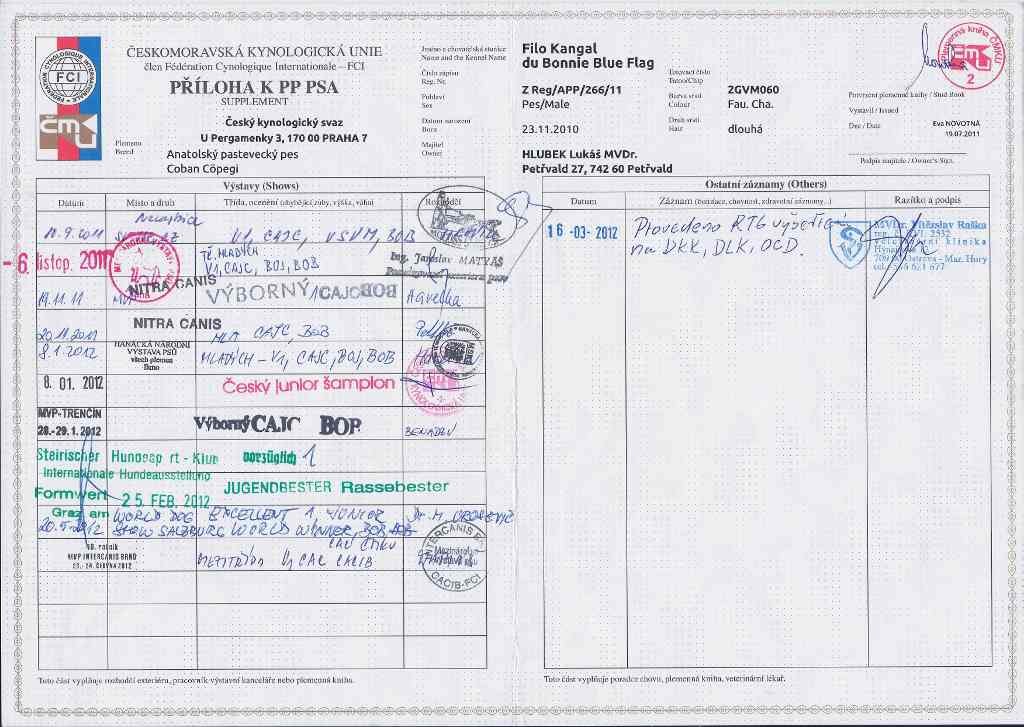 ČESKOMORAVSKÁ KYNOLOGICKÁ UNIE
člen Fédération Cynologique Internationale – FCI
PŘÍLOHA K PP PSA
SUPPLEMENT
Český kynologický svaz
U Pergamenky 3, 170 00 PRAHA 7
Plemeno
Breed
Anatolský pastevecký pes
Coban Cöpegi
FCI
ČMKU
Jméno a chovatelská stanice
Name and the Kennel Name
Filo Kangal
du Bonnie Blue Flag
Číslo zápisu
Reg. Nr.
Z Reg/APP/266/11
Pohlaví
Sex
Pes/Male
Datum narození
Born
23.11.2010
Majitel
Owner
HLUBEK Lukáš MVDr.
Petřvald 27, 742 60 Petřvald
Tetovací číslo
Tatoo/Chip
2GVM060
Barva srsti
Colour
Fau. Cha.
Druh srsti
Hair
dlouhá
Plemenná kniha ČMKU
2
Potvrzení plemenné knihy / Stud Book
Vystavil / Issued
Eva NOVOTNÁ
Dne / Date
19.07.2011
Podpis majitele / Owner's Sign.
Výstavy (Shows)
Datum
Místo a druh
Třída, ocenění (chybějící zuby, výška, váha)
Rozhodčí
V1, CAJC, VSVM, BOB
- 6. listop. 2011
TŘ. MLADÝCH
V1, CAJC, BOJ, BOB
Ing. Jaroslav MATYÁŠ
19.11.11
NITRA CANIS
VÝBORNÝ 1 CAJC BOB
20.11.2011
NITRA CANIS
CAJC, BOB
8.1.2012
HANÁCKÁ NÁRODNÍ
VÝSTAVA PSŮ
všech plemen
Brno
MLADÝCH - V1, CAJC, BOJ, BOB
8. 01. 2012
Český junior šampion
MVP-TRENČÍN
28.-29.1.2012
Výborný CAJC BOB
Steirischer Hundesport-Klub
vorzüglich 1
Internationale Hundeausstellung
Formwert
25. FEB. 2012
JUGENDBESTER Rassebester
Graz am
WORLD DOG EXCELLENT 1, JUNIOR
20.5.2012 SHOW SALZBURG WORLD WINNER, BOJ, BOB
18. ročník
MVP INTERCANIS BRNO
23.-24. ČERVNA 2012
CAC ČMKU
MEZITŘÍDA V1 CAC CACIB
INTERCANIS BRNO
CACIB-FCI
Toto část vyplňuje rozhodčí exteriéru, pracovník výstavní kanceláře nebo plemenná kniha.
Ostatní záznamy (Others)
Datum
Záznam (bonitace, chovnost, zdravotní záznamy...)
Razítko a podpis
16 -03- 2012
Provedeno RTG vyšetření
na DKK, DLK, OCD.
MVDr. Vítězslav Raška
Veterinární klinika
709 00 Ostrava - Mar. Hory
Toto část vyplňuje poradce chovu, plemenná kniha, veterinární lékař.